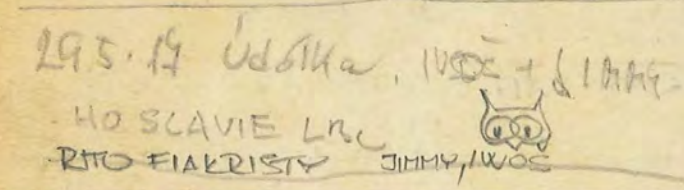 29.5.17 Údolka, IWOŠ + JIMMY
HO SLAVIE LBC
RHO FIAKRISTY JIMMY, IWOŠ